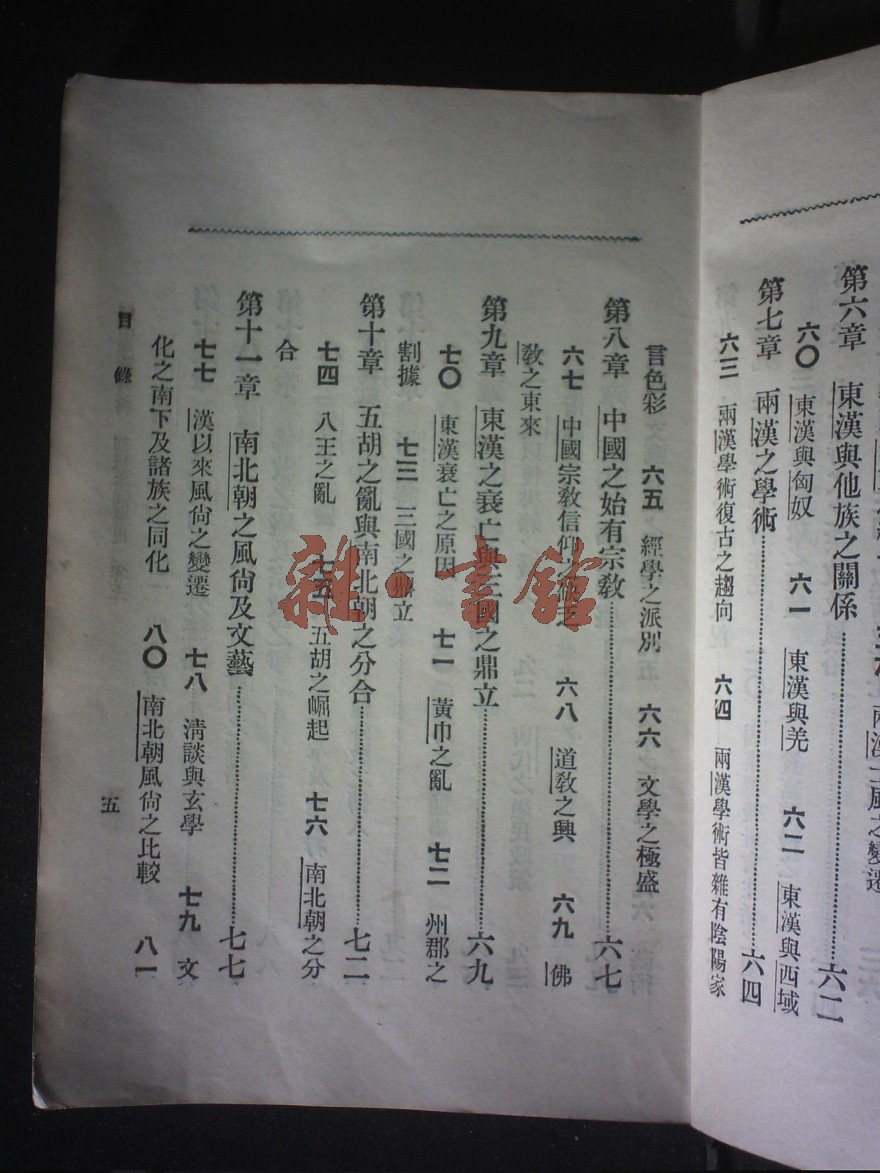 第六章　東漢與他族之關係……六二
六〇　東漢與匈奴　六一　東漢與羌　六二　東漢與西域
第七章　兩漢之學術……六四
六三　兩漢學術復古之趨向　六四　兩漢學術皆雜有陰陽家
言色彩　六五　經學之派別　六六　文學之極盛
第八章　中國之始有宗教……六七
六七　中國宗教信仰　六八　道教之興　六九　佛
教之東來
第九章　東漢之衰亡與三國之鼎立……六九
七〇　東漢衰亡之原因　七一　黃巾之亂　七二　州郡之
割據　七三　三國之鼎立
第十章　五胡之亂與南北朝之分合……七二
七四　八王之亂　七五　五胡之崛起　七六　南北朝之分
合
第十一章　南北朝之風尙及文藝……七七
七七　漢以來風尙之變遷　七八　清談與玄學　七九　文
化之南下及諸族之同化　八〇　南北朝風尙之比較　八一
目錄
五
雜·書館